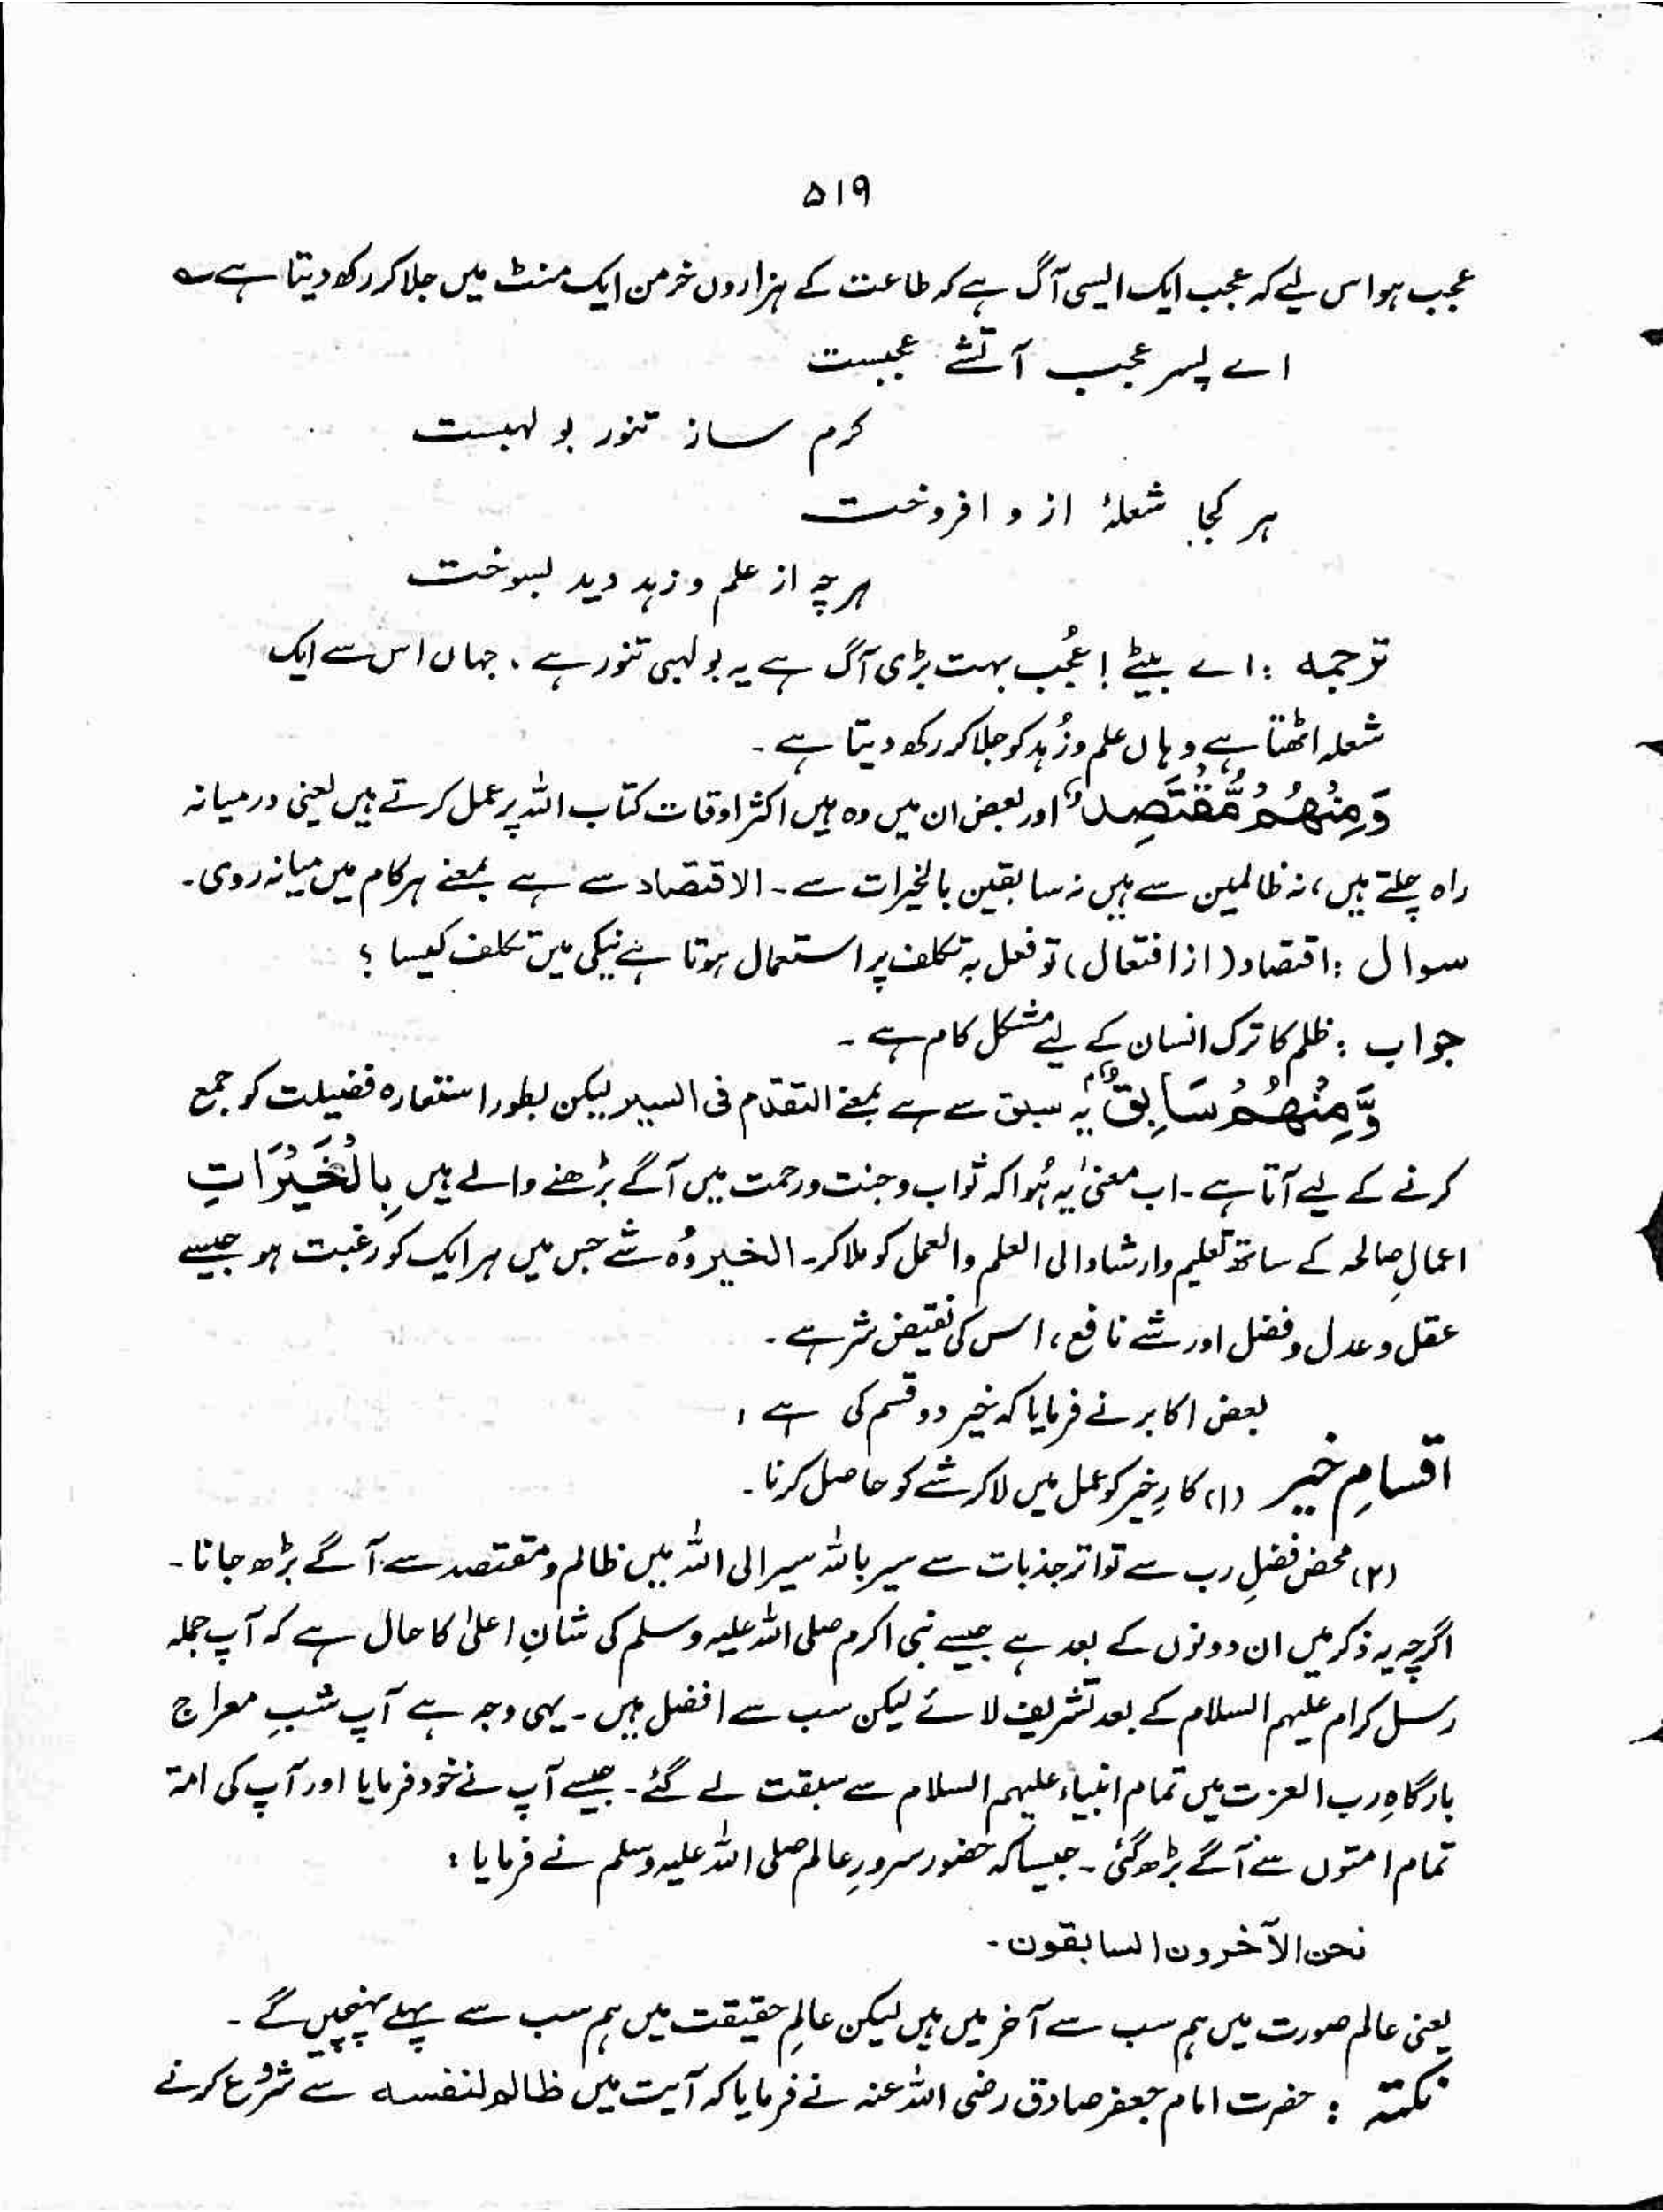 ۵۱۹
عجب ہو اس لیے کہ عجب ایک ایسی آگ ہے کہ طاعت کے ہزاروں خرمن ایک منٹ میں جلا کر رکھ دیتا ہے ؎
اے پسر عجب آتشے عجبست
گرم ساز تنور بو لہبست
ہر کجا شعلۂ از و افروخت
ہرچہ از علم و زہد دید بسوخت
ترجمہ : اے بیٹے ! عُجب بہت بڑی آگ ہے یہ بولہبی تنور ہے ۔ جہاں اس سے ایک
شعلہ اٹھتا ہے وہاں علم و زُہد کو جلا کر رکھ دیتا ہے ۔
وَمِنْهُمْ مُّقْتَصِدٌ ۚ اور بعض ان میں وہ ہیں اکثر اوقات کتاب اللہ پر عمل کرتے ہیں یعنی درمیانہ
راہ چلتے ہیں ، نہ ظالمین سے ہیں نہ سابقین بالخیرات سے ۔ الاقتصاد سے ہے بمعنے ہر کام میں میانہ روی ۔
سوال : اقتصاد ( از افتعال ) تو فعل بہ تکلف پر استعمال ہوتا ہے نیکی میں تکلف کیسا ؟
جواب : ظلم کا ترک انسان کے لیے مشکل کام ہے ۔
وَمِنْهُمْ سَابِقٌ ۢ یہ سبق سے ہے بمعنے التقدم فی السیر لیکن بطور استعارہ فضیلت کو جمع
کرنے کے لیے آتا ہے ۔ اب معنیٰ یہ ہُوا کہ ثواب و جنت و رحمت میں آگے بڑھنے والے ہیں بِالْخَيْرَاتِ
اعمالِ صالحہ کے ساتھ تعلیم و ارشاد الی العلم والعمل کو ملا کر ۔ الخیر وُہ شے جس میں ہر ایک کو رغبت ہو جیسے
عقل و عدل و فضل اور شے نافع ، اس کی نقیض شر ہے ۔
بعض اکابر نے فرمایا کہ خیر دو قسم کی ہے :
اقسامِ خیر (۱) کارِ خیر کو عمل میں لا کر شے کو حاصل کرنا ۔
(۲) محض فضلِ رب سے تواتر جذبات سے سیر باللہ سیر الی اللہ میں ظالم و مقتصد سے آگے بڑھ جانا ۔
اگرچہ یہ ذکر میں ان دونوں کے بعد ہے جیسے نبی اکرم صلی اللہ علیہ وسلم کی شانِ اعلیٰ کا حال ہے کہ آپ جملہ
رسل کرام علیہم السلام کے بعد تشریف لائے لیکن سب سے افضل ہیں ۔ یہی وجہ ہے آپ شبِ معراج
بارگاہِ رب العزت میں تمام انبیاء علیہم السلام سے سبقت لے گئے ۔ جیسے آپ نے خود فرمایا اور آپ کی امۃ
تمام امتوں سے آگے بڑھ گئی ۔ جیسا کہ حضور سرورِ عالم صلی اللہ علیہ وسلم نے فرمایا :
نحن الآخرون السابقون ۔
یعنی عالم صورت میں ہم سب سے آخر میں ہیں لیکن عالمِ حقیقت میں ہم سب سے پہلے پہنچیں گے ۔
نکتہ : حضرت امام جعفر صادق رضی اللہ عنہ نے فرمایا کہ آیت میں ظالم لنفسہ سے شروع کرنے